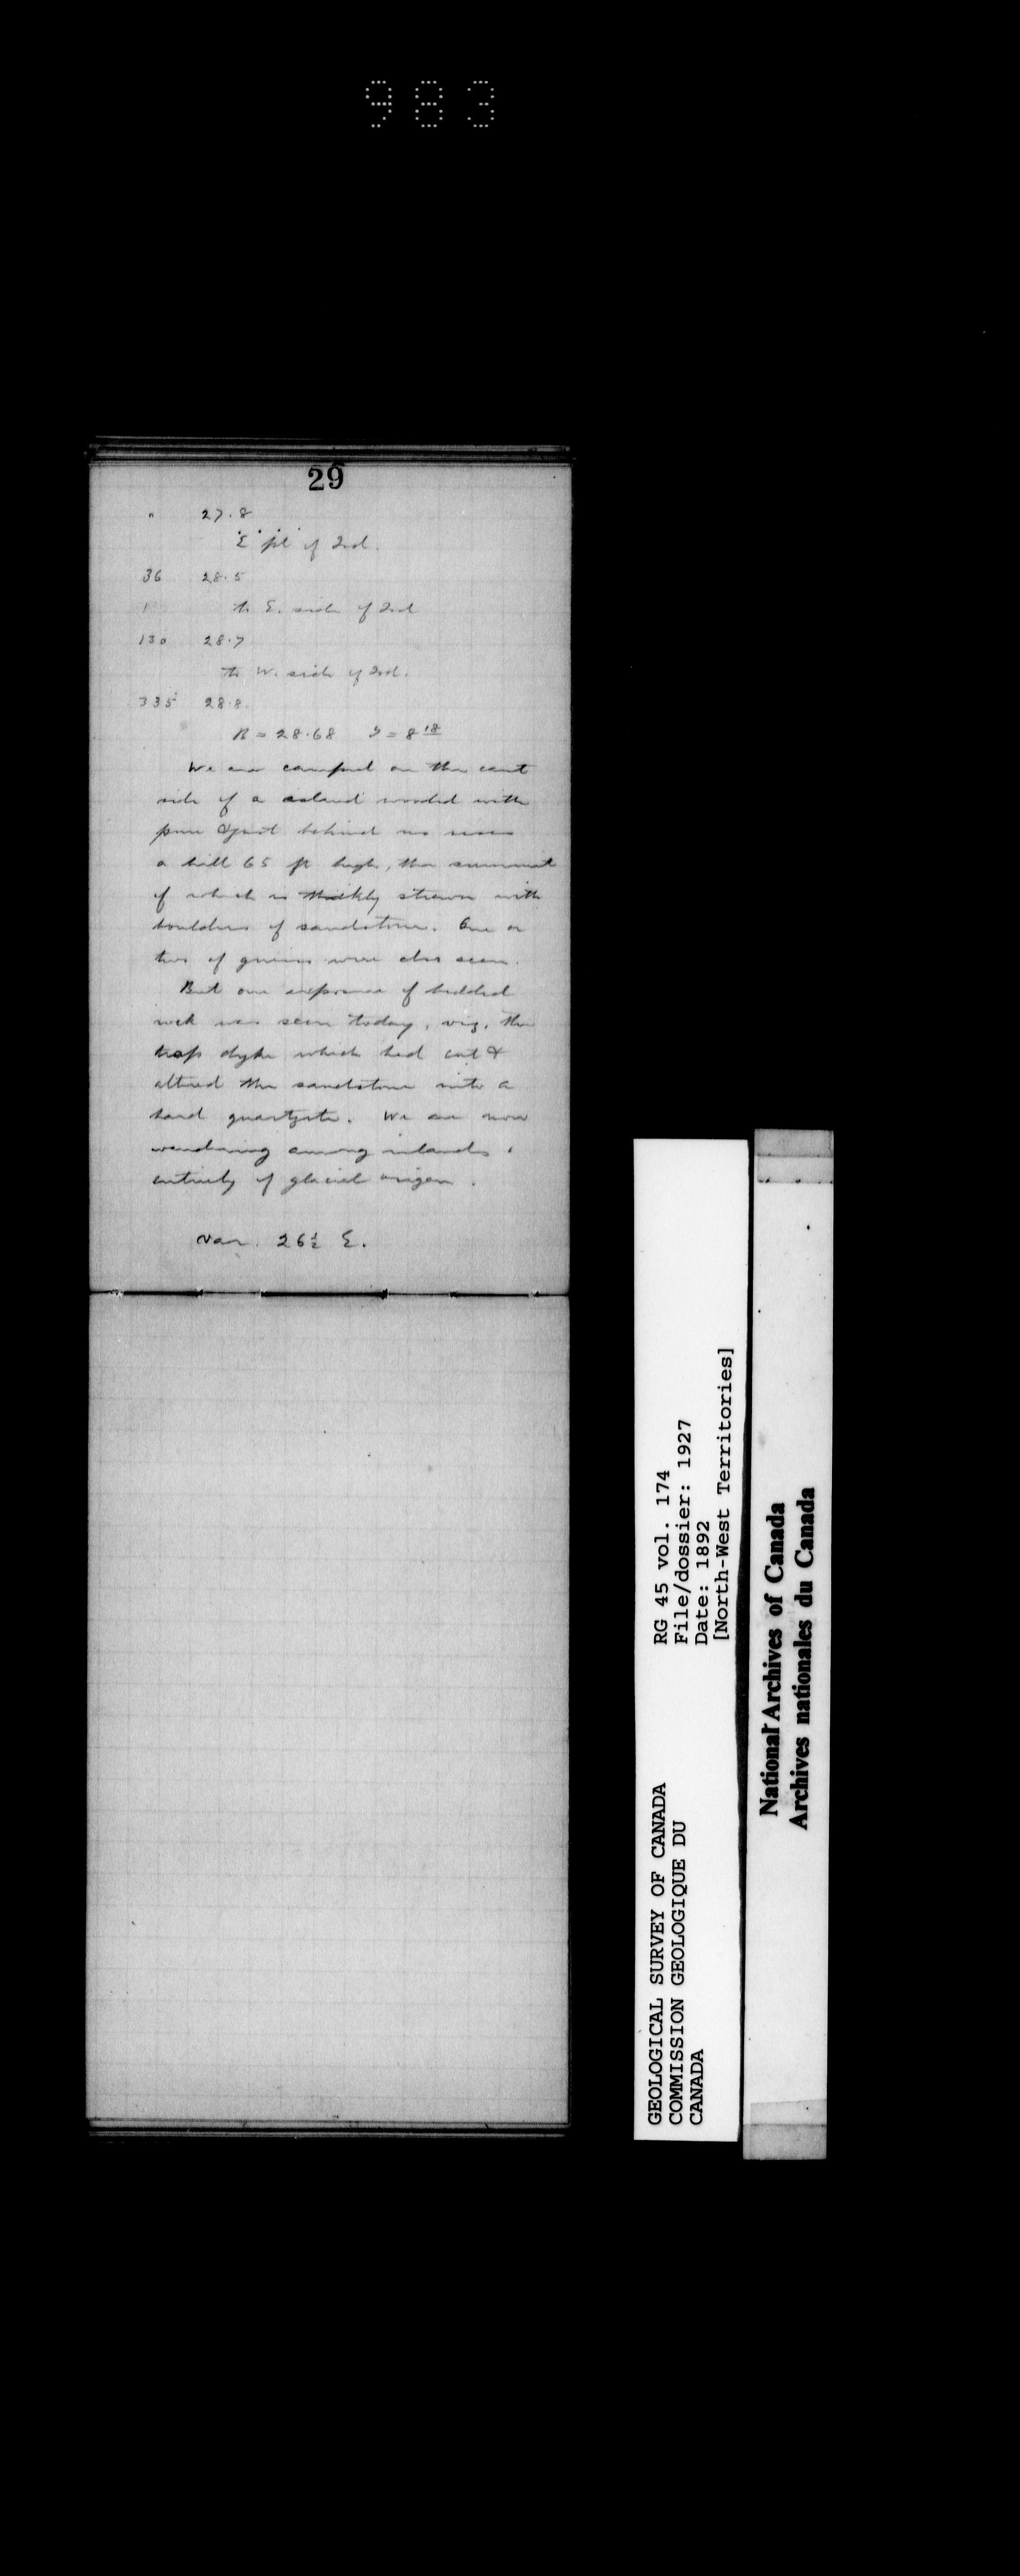 983
29
" 27.8
E. pt of Isd.
36 28.5
1 to E. side of Isd
130 28.7
to W. side of Isd.
335 28.8
R = 28.68 T = 8 18
We are camped on the east
side of a island wooded with
pine & just behind us rises
a hill 65 ft high, the summit
of which is thickly strewn with
boulders of sandstone. One or
two of gneiss were also seen.
But one exposure of bedded
rock was seen today, viz, the
trap dyke which had cut &
altered the sandstone into a
hard quartzite. We are now
wandering among islands
entirely of glacial origen.
Var. 26½ E.
GEOLOGICAL SURVEY OF CANADA
COMMISSION GEOLOGIQUE DU
CANADA
RG 45 vol. 174
File/dossier: 1927
Date: 1892
[North-West Territories]
National Archives of Canada
Archives nationales du Canada